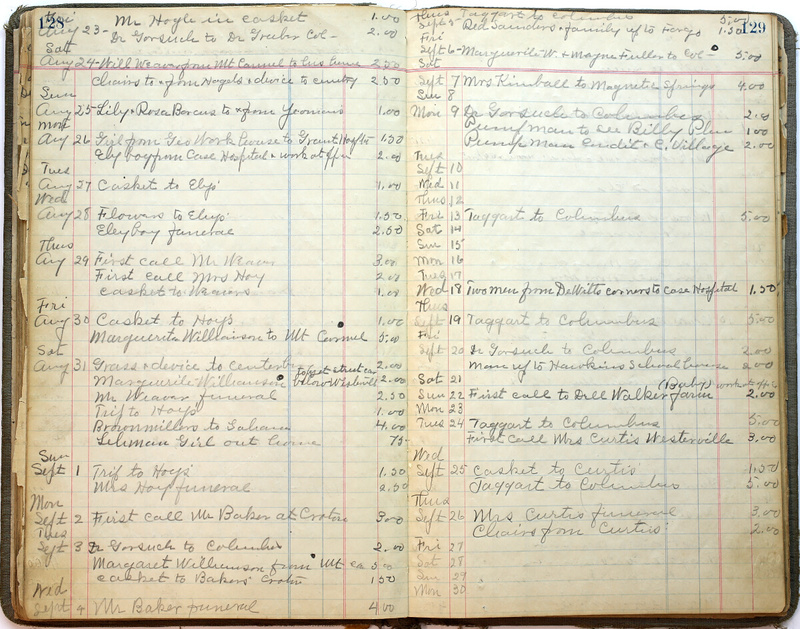 128
Fri Mr Hoyle in casket 1.00
Aug 23 - Dr Gorsuch to Dr Col - 2.00
Sat
Aug 24 - Will Weaver from Mt Carmel to his home 2.50
Chairs to & from & device to 2.50
Sun
Aug 25 Lily & Rosa to & from 1.00
Mon
Aug 26 Girl from Geo Workhouse to Grant 1.50
Ely boy from Case Hospital & work at 2.00
Tues
Aug 27 Casket to Elys 1.00
Wed
Aug 28 Flowers to Elys 1.50
Eley boy funeral 2.50
Thus
Aug 29 First call Mr Weaver 3.00
First call Mrs Hoy 2.00
casket to Weavers 1.00
Fri
Aug 30 Casket to Hoys 1.00
Marguerite Williamson to Mt Carmel 5.00
Sat
Aug 31 Grass & device to 2.00
Marguerite Williamson to street car below Westerville 2.00
Mr Weaver funeral 2.50
Trip to Hoys 1.00
Brownmillers to Gahana 4.00
Lehman Girl out home 75-
Sun
Sept 1 Trip to Hoys 1.50
Mrs Hoy funeral 2.50
Mon
Sept 2 First call Mr Baker at Croton 3.00
Tues
Sept 3 Dr Gorsuch to Columbus 2.00
Margaret Williamson from Mt Ca 5.00
casket to Bakers Croton 1.50
Wed
Sept 4 Mr Baker funeral 4.00
129
Thus Taggart to Columbus 5.00
Sept 5 - Red Sanders & family up to 1.50
Fri
Sept 6 - Marguerite W. & Mayme Fuller to Col - 5.00
Sat
Sept 7 Mrs Kimball to Magnetic Springs 4.00
Sun 8
Mon 9 Dr Gorsuch to Columbus 2.00
Pump Man to see Billy 1.00
Pump Man & C. Village 2.00
Tues
Sept 10
Wed 11
Thus 12
Fri 13 Taggart to Columbus 5.00
Sat 14
Sun 15
Mon 16
Tues 17
Wed 18 Two men from DeWitts corners to case Hospital 1.50
Thus
Sept 19 Taggart to Columbus 5.00
Fri
Sept 20 Dr Gorsuch to Columbus 2.00
Man up to Hawkins School house 2.00
Sat 21
(Baby)
Sun 22 First call to Dell Walker farm 2.00
Mon 23
Tues 24 Taggart to Columbus 5.00
First call Mrs Curtis Westerville 3.00
Wed
Sept 25 Casket to Curtis 1.50
Taggart to Columbus 5.00
Thus
Sept 26 Mrs Curtis funeral 3.00
Chairs from Curtis 2.00
Fri 27
Sat 28
Sun 29
Mon 30